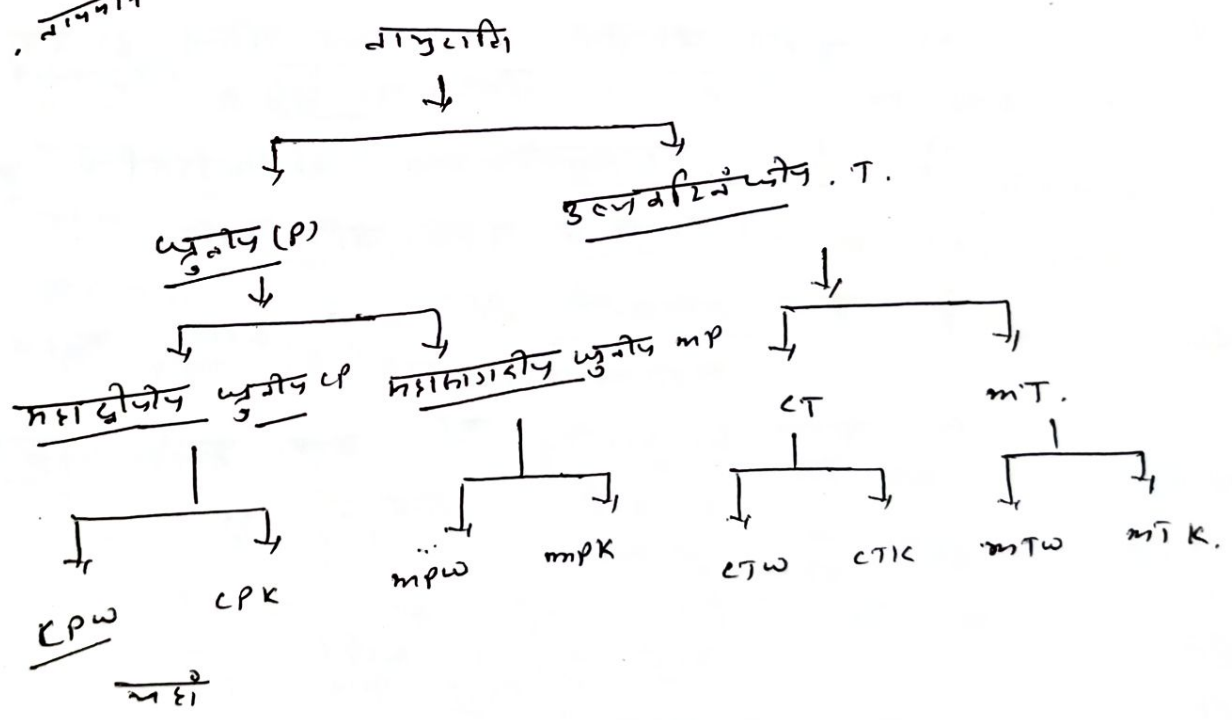 वायुराशि
ध्रुवीय (P)
उष्णकटिबंधीय . T.
महाद्वीपीय ध्रुवीय CP
महासागरीय ध्रुवीय mP
CT
mT.
CPW
CPK
mPW
mPK
CTW
CTK
mTW
mTK.
यहाँ